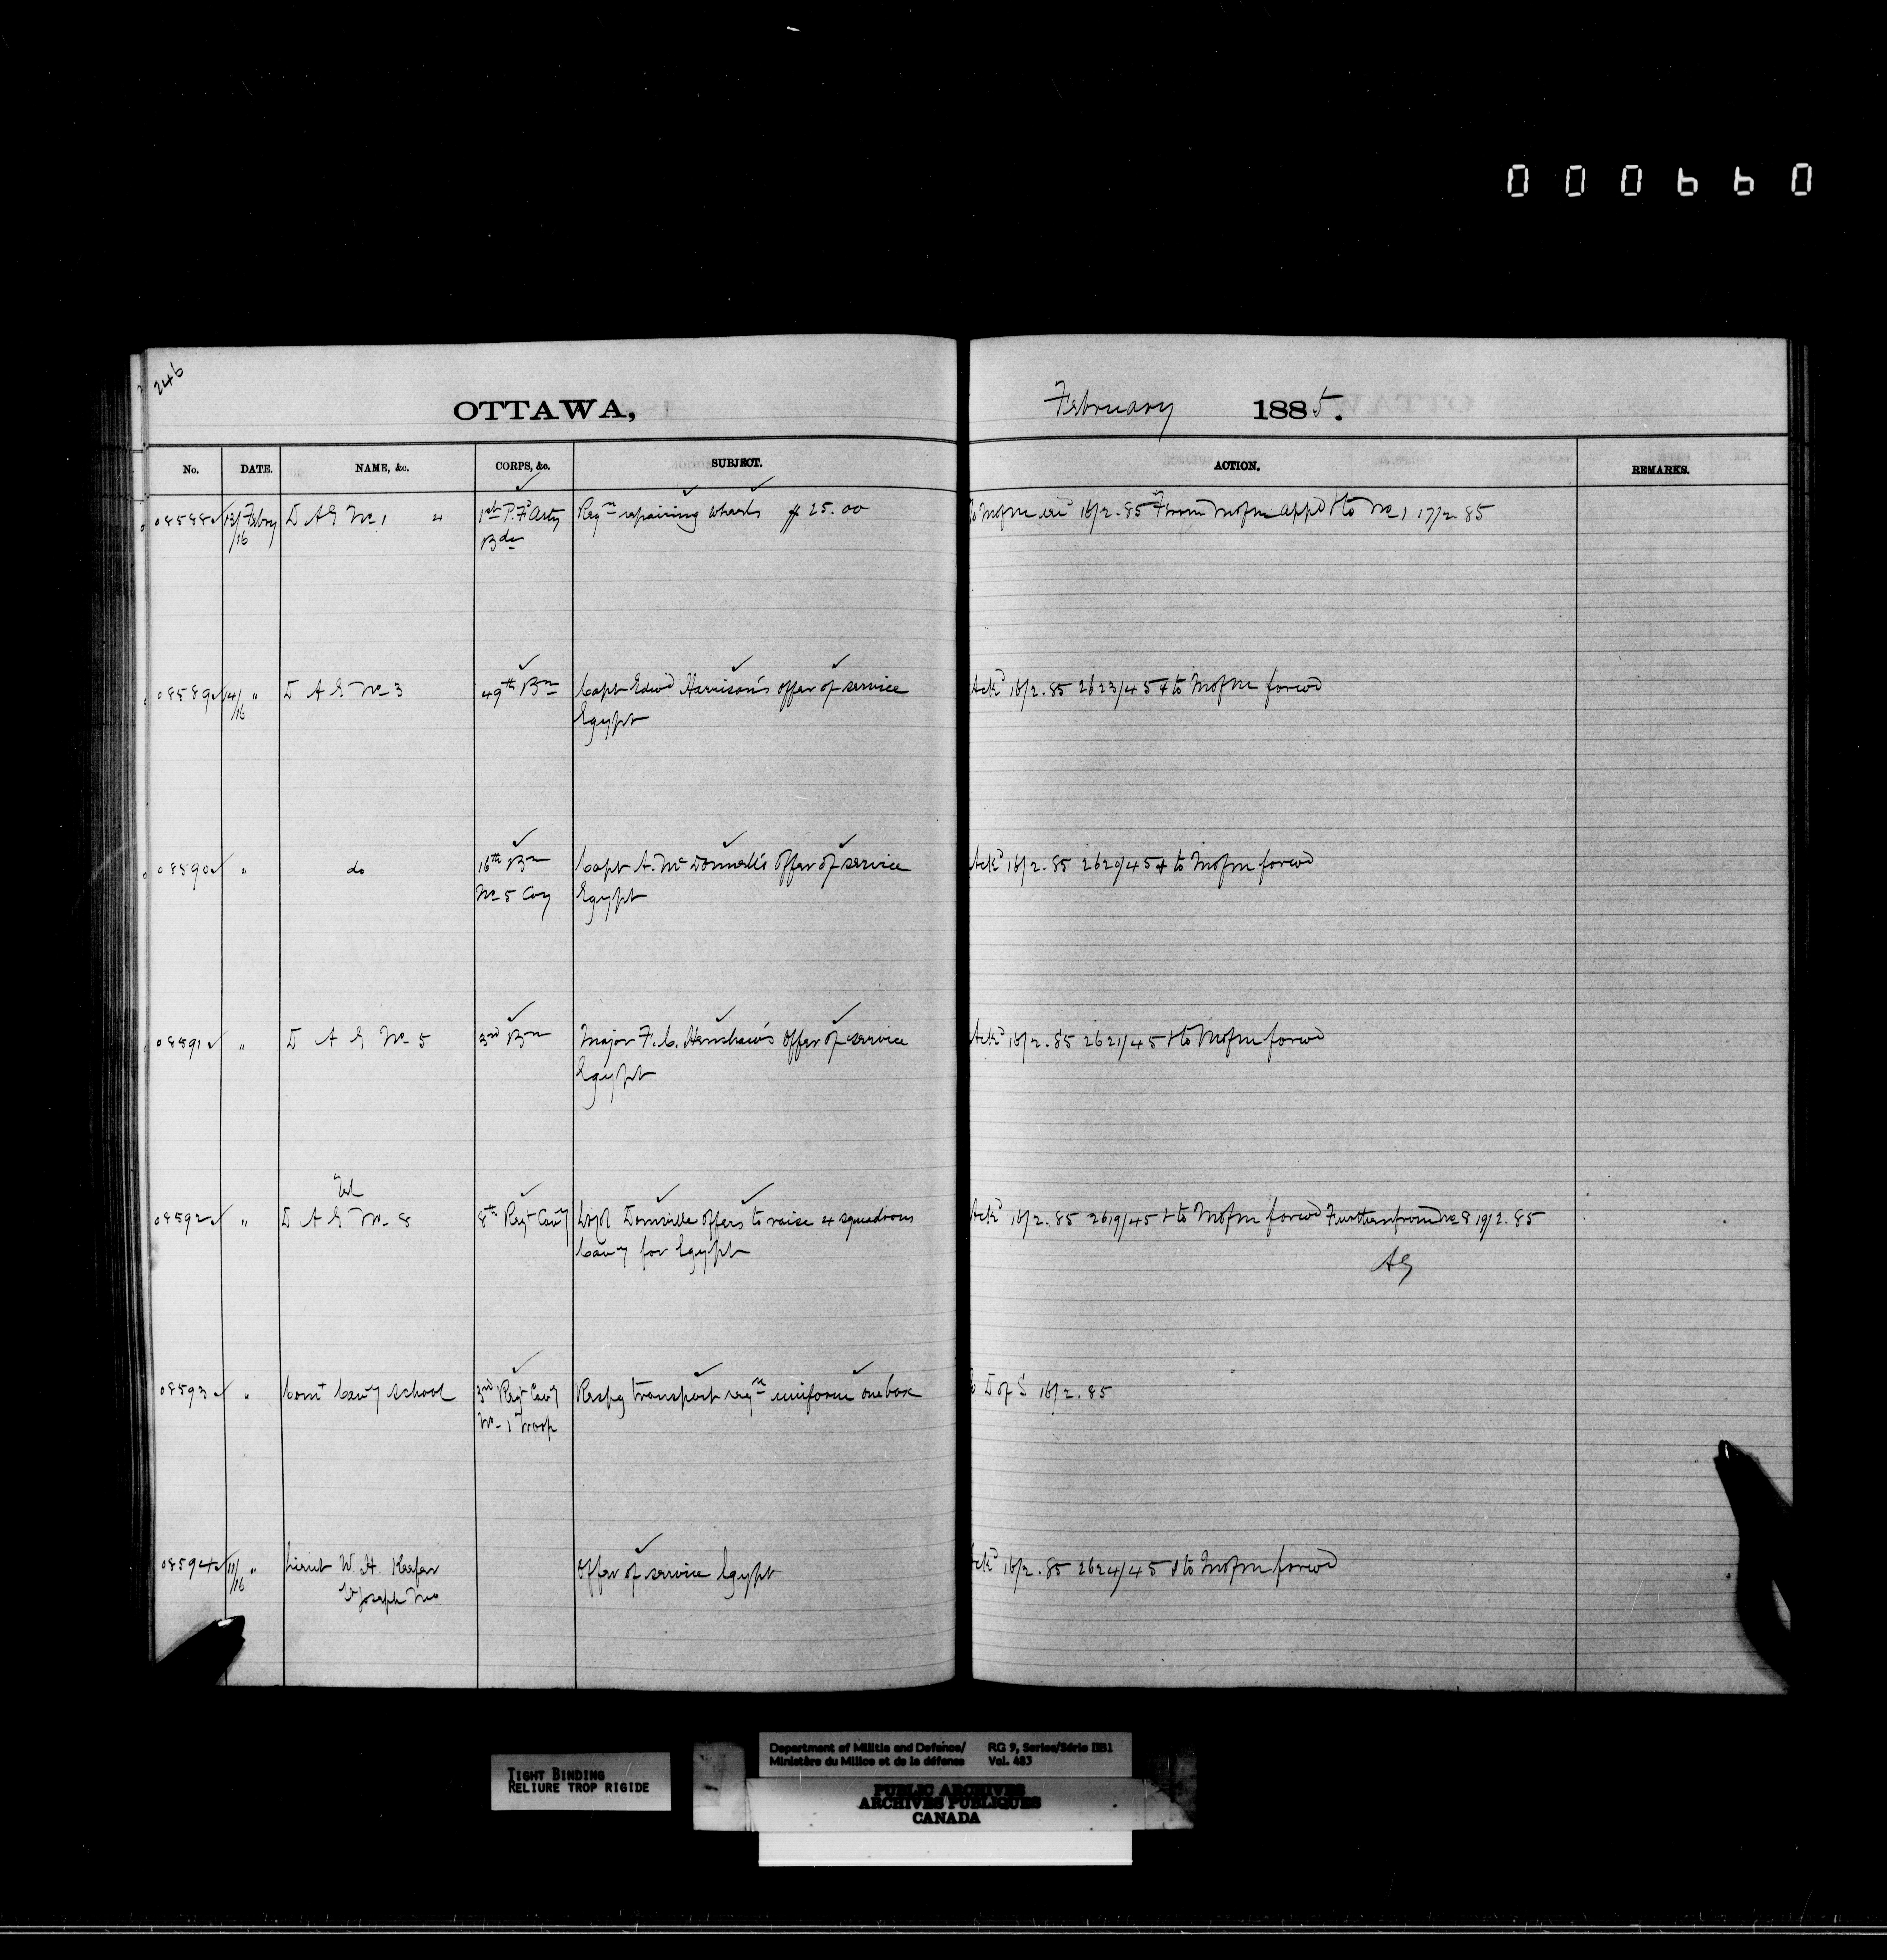 000660
246
OTTAWA, February 1885.
No. DATE. NAME, &c. CORPS, &c. SUBJECT. ACTION. REMARKS.
08588 13/ Febry D A G No 1 1st P. F. Arty Reqn repairing wheels $ 25.00 To M of M 16/2.85 From M of M appd & to No 1 17/2.85
/16 Bde
08589 14/ " D A G No 3 49th Bn Capt Edwd Harrison's offer of service Ackd 16/2.85 2623/45 & to M of M forwd
/16 Egypt
08590 " do 16th Bn Capt A. McDonnell's offer of service Ackd 16/2.85 2620/45 & to M of M forwd
No 5 Coy Egypt
08591 " D A G No 5 3rd Bn Major F. C. Henshaw's offer of service Ackd 16/2.85 2621/45 & to M of M forwd
Egypt
Tel
08592 " D A G No 8 8th Regt Cavy Domville offers to raise 4 squadrons Ackd 16/2.85 2619/45 & to M of M forwd Further from No 8 19/2.85
Cavy for Egypt AG
08593 " Comt Cavy School 3rd Regt Cavy Respg transport reqn uniform one box D of S 16/2.85
No 1 Troop
08594 11/ " Lieut W. H. Keefer Offer of service Egypt Ackd 16/2.85 2624/45 & to M of M forwd
/16 St Joseph Mo
TIGHT BINDING
RELIURE TROP RIGIDE
Department of Militia and Defence/ RG 9, Series/Série IIB1
Ministère du Milice et de la défense Vol. 483
PUBLIC ARCHIVES
ARCHIVES PUBLIQUES
CANADA